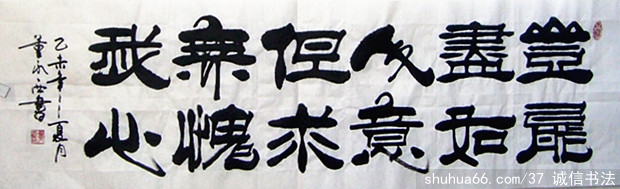 豈能
盡如
人意
但求
無愧
我心
乙未年夏月
董書
shuhua66.com/37 诚信书法